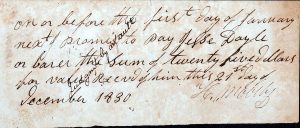 on or before the first day of January
next I promise to pay Jesse Doyle
or barer the Sum of twenty five dollars
for value Recvd of him this 29th day of
December 1830